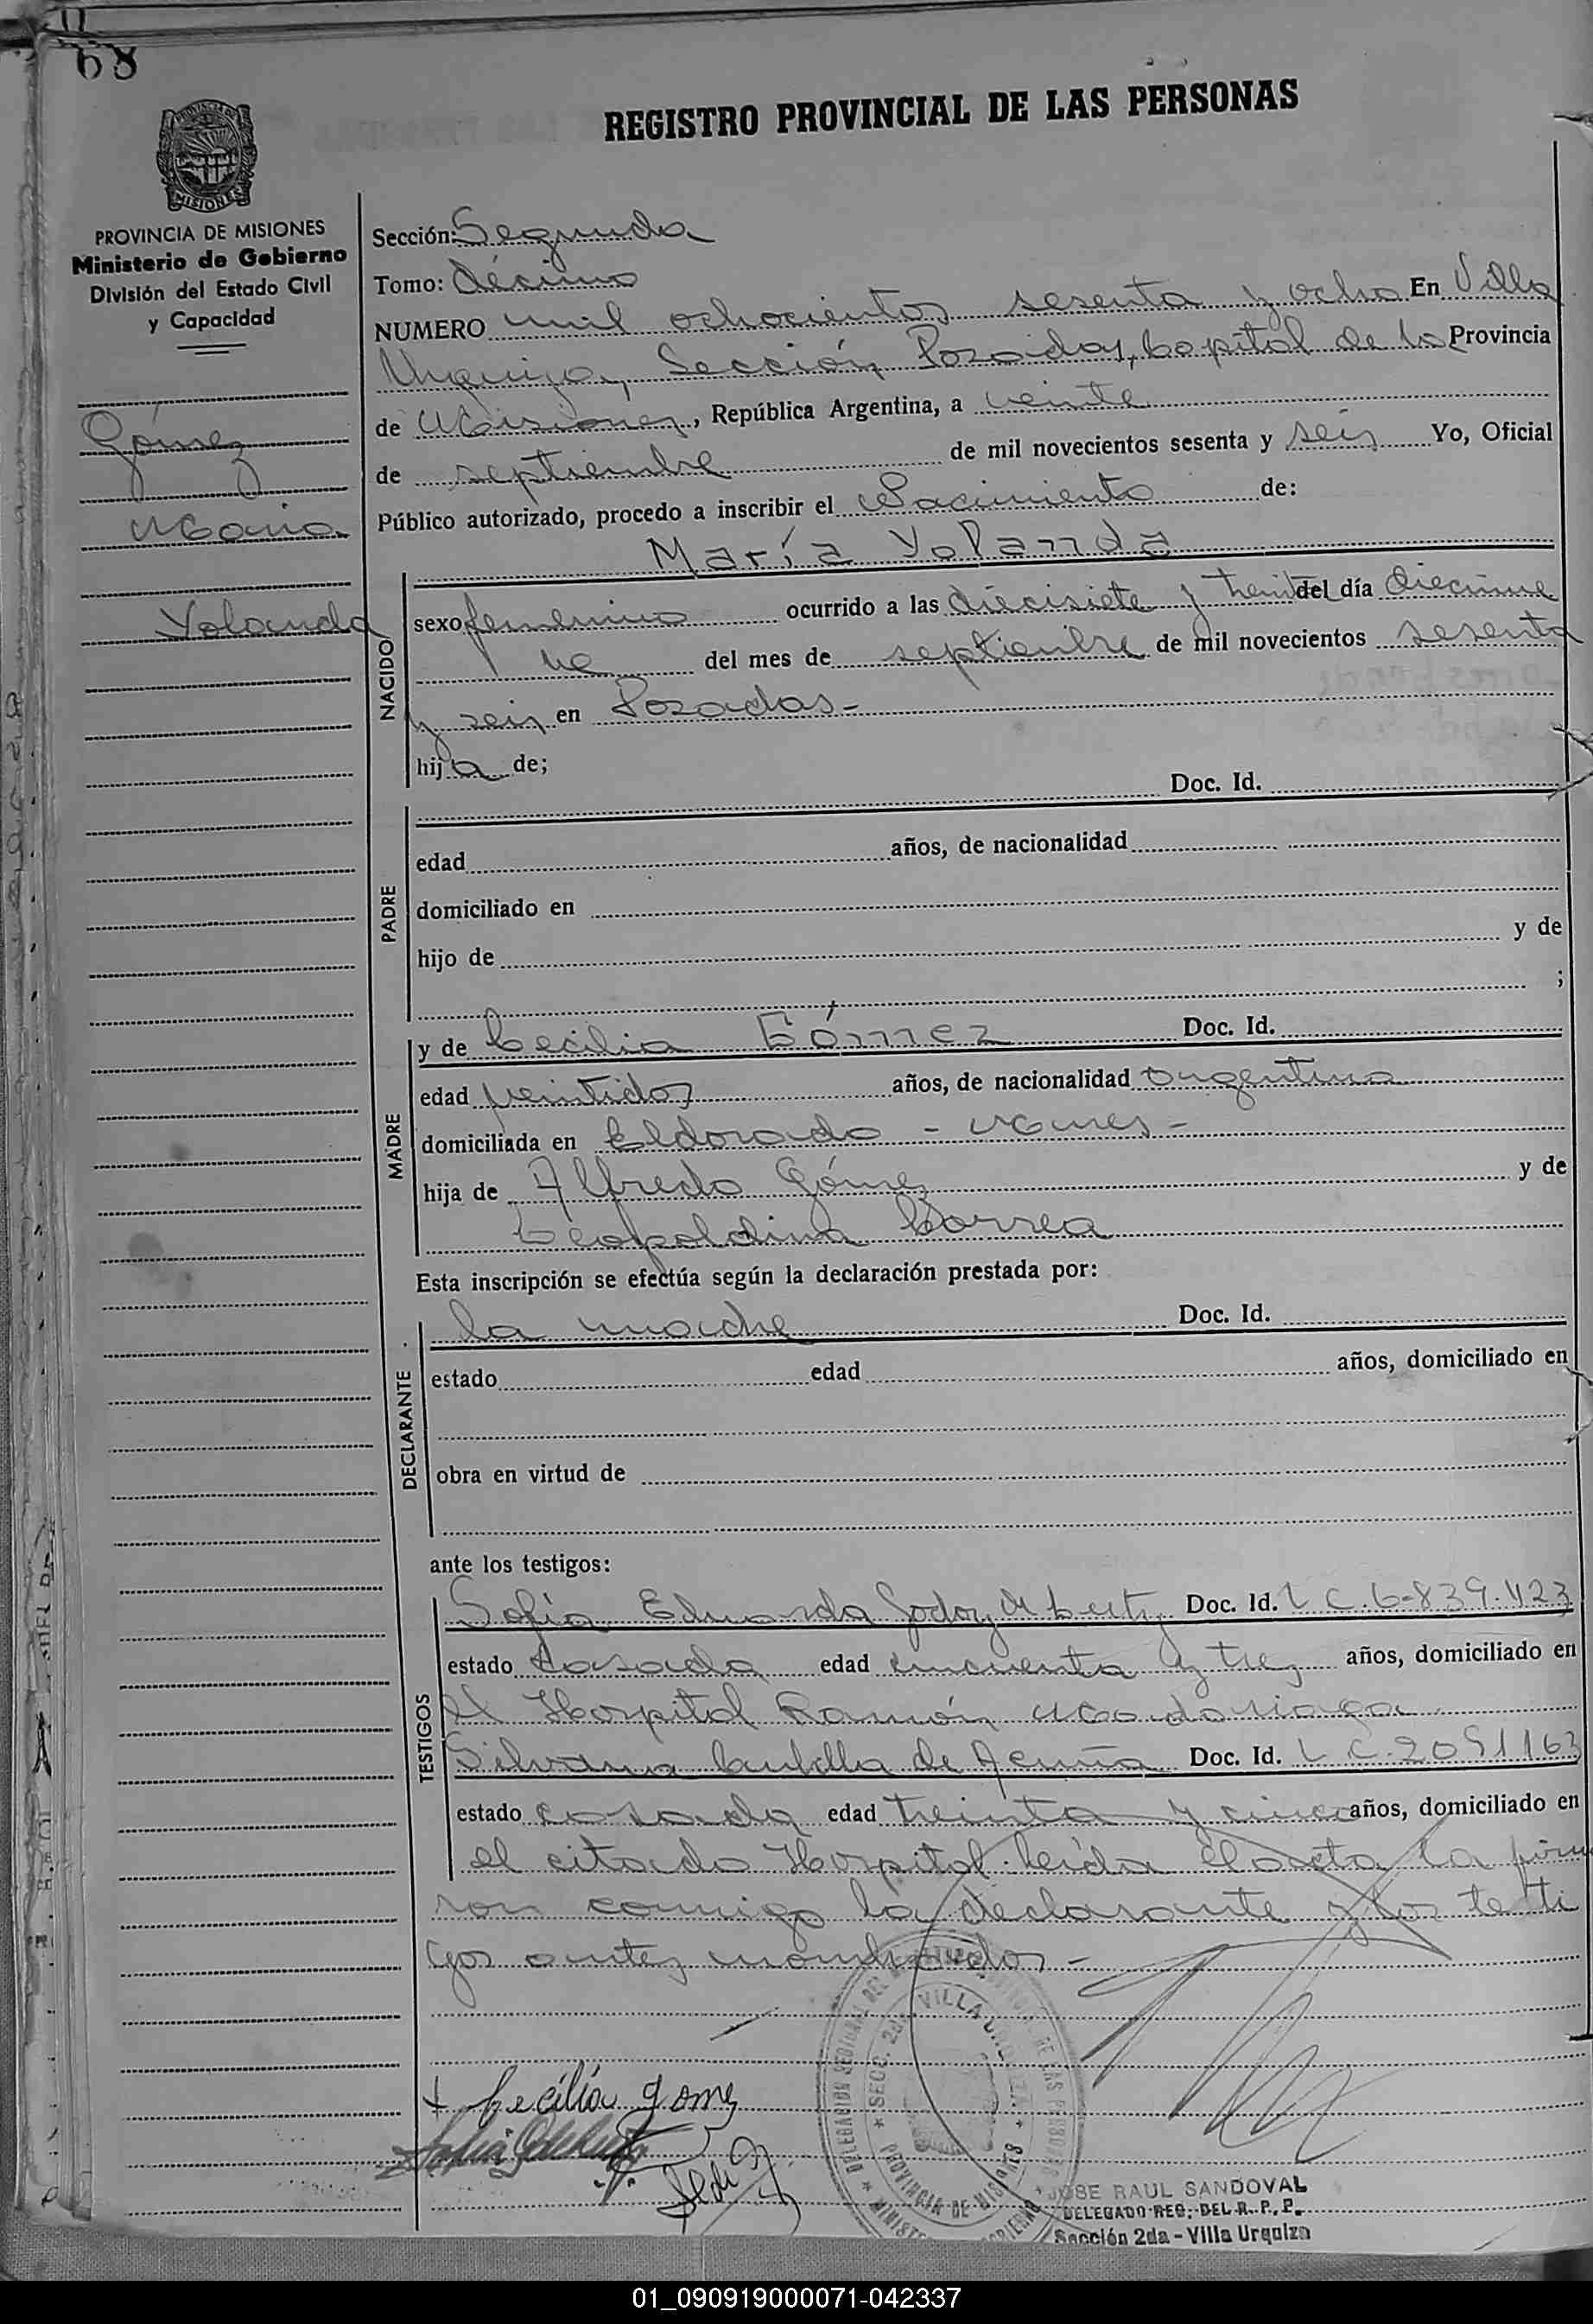 68
REGISTRO PROVINCIAL DE LAS PERSONAS
PROVINCIA DE MISIONES
Ministerio de Gobierno
División del Estado Civil
y Capacidad
Gómez
María
Yolanda
Sección: Segunda
Tomo: Décimo
NUMERO mil ochocientos sesenta y ocho En Villa
Urquiza, Sección Posadas, Capital de la Provincia
de Misiones, República Argentina, a veinte
de septiembre de mil novecientos sesenta y seis Yo, Oficial
Público autorizado, procedo a inscribir el Nacimiento de:
María Yolanda
NACIDO
sexo femenino ocurrido a las diecisiete y treinta del día diecinue
ve del mes de septiembre de mil novecientos sesenta
y seis en Posadas-
hija de;
PADRE
Doc. Id.
edad años, de nacionalidad
domiciliado en
hijo de y de
;
MADRE
y de Cecilia Gómez Doc. Id.
edad veintidos años, de nacionalidad argentina
domiciliada en Eldorado - Mnes-
hija de Alfredo Gómez y de
Leopoldina Correa
Esta inscripción se efectúa según la declaración prestada por:
DECLARANTE
la madre Doc. Id.
estado edad años, domiciliado en
obra en virtud de
ante los testigos:
TESTIGOS
Sofía Eduarda Godoy de Doc. Id. L C. 6-839.423
estado Casada edad cincuenta y tres años, domiciliado en
el Hospital Ramón Madariaga
Silvana de Acuña Doc. Id. L C. 2051163
estado casada edad treinta y cinco años, domiciliado en
el citado Hospital. Leída el acta la firma
ron conmigo la declarante y los testi
gos antes nombrados-
DELEGACION SECCIONAL DEL DE LAS PERSONAS
SECC. 2da VILLA URQUIZA
PROVINCIA DE MISIONES
Cecilia gomez
JOSE RAUL SANDOVAL
DELEGADO REG. DEL R. P. P.
Sección 2da - Villa Urquiza
01_090919000071-042337